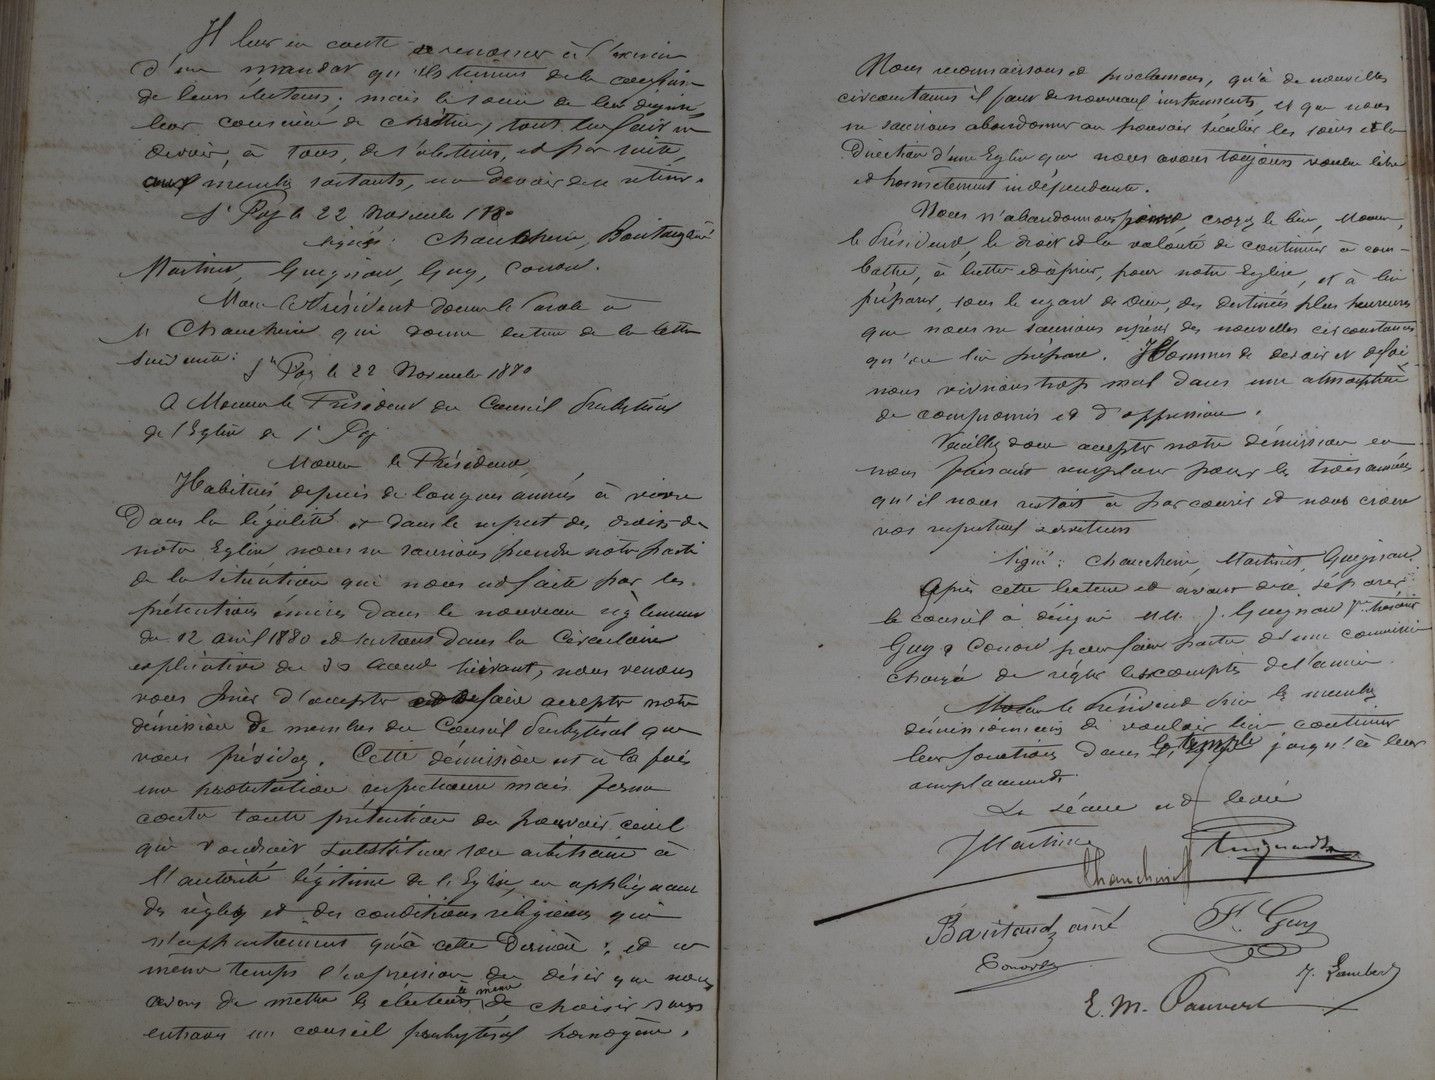 Il leur en coute de renoncer à l'exercice
d'un mandat qu'ils tiennent de la confiance
de leurs électeurs. mais le souci de leur dignité,
leur conscience de chrétien, tout leur fait un
devoir, à tous, de s'abstenir, et par suite,
aux membres sortants, un devoir de se retirer.
St Poy le 22 Novembre 1880
signés: Chaucherie, Baritaud aîné
Martinet, Guignard, Guy, Conord.
Monr le Président donne la Parole à
M Chaucherie qui donne lecture de la lettre
suivante: St Poy le 22 Novembre 1880
A Monsieur le Président du Conseil Presbytéral
de l'Eglise de St Poy
Monsieur le Président,
Habitués depuis de longues années à vivre
dans la légalité et dans le respect des droits de
notre Eglise nous ne saurions prendre notre parti
de la situation qui nous est faite par les
prétentions émises dans le nouveau règlement
du 12 avril 1880 et surtout dans la Circulaire
explicative du suivant, nous venons
vous prier d'accepter et de faire accepter notre
démission de membres du Conseil Presbytéral que
vous présidez. Cette démission est à la fois
une protestation respectueuse mais ferme
contre toute prétention du pouvoir civil
qui voudrait substituer son arbitraire à
l'autorité légitime de l'Eglise, en appliquant
des règles et des conditions religieuses qui
n'appartiennent qu'à cette dernière; et en
même temps l'expression du désir que nous
avons de mettre les électeurs à même de choisir sans
entraves un conseil presbytéral homogène.
Nous reconnaissons et proclamons, qu'à de nouvelles
circonstances il faut de nouveaux instruments, et que nous
ne saurions abandonner au pouvoir séculier les soins et la
Direction d'une Eglise que nous avons toujours voulue libre
et honnêtement indépendante.
Nous n'abandonnons pour, croyez le bien, Monsieur
le Président, le droit et la volonté de continuer à com-
battre, à lutter et à prier, pour notre Eglise, et à lui
préparer, sous le regard de Dieu, des destinées plus heureuses
que nous ne saurions espérer des nouvelles circonstances
qu'on lui prépare. Hommes de devoir et de foi,
nous vivrions trop mal dans une atmosphère
de compromis et d'oppression.
Veuillez donc accepter notre démission en
nous faisant remplacer pour les trois années
qu'il nous restait à parcourir et nous croire
vos respectueux serviteurs
Signé: Chaucherie, Martinet, Guignard.
Après cette lecture et avant de se séparer
le conseil a désigné MM. J. Guignard
Guy & Conord pour faire partie d'une commission
chargée de régler les comptes de l'année.
Monsieur le Président prie les membres
démissionnaires de vouloir bien continuer
leurs fonctions dans le temple jusqu'à leur
remplacement.
La séance est levée
Martinet
Guignard
Chaucherie
Baritaud aîné
Ft Guy
Conord
J. Lambert
E. M. Pauvert